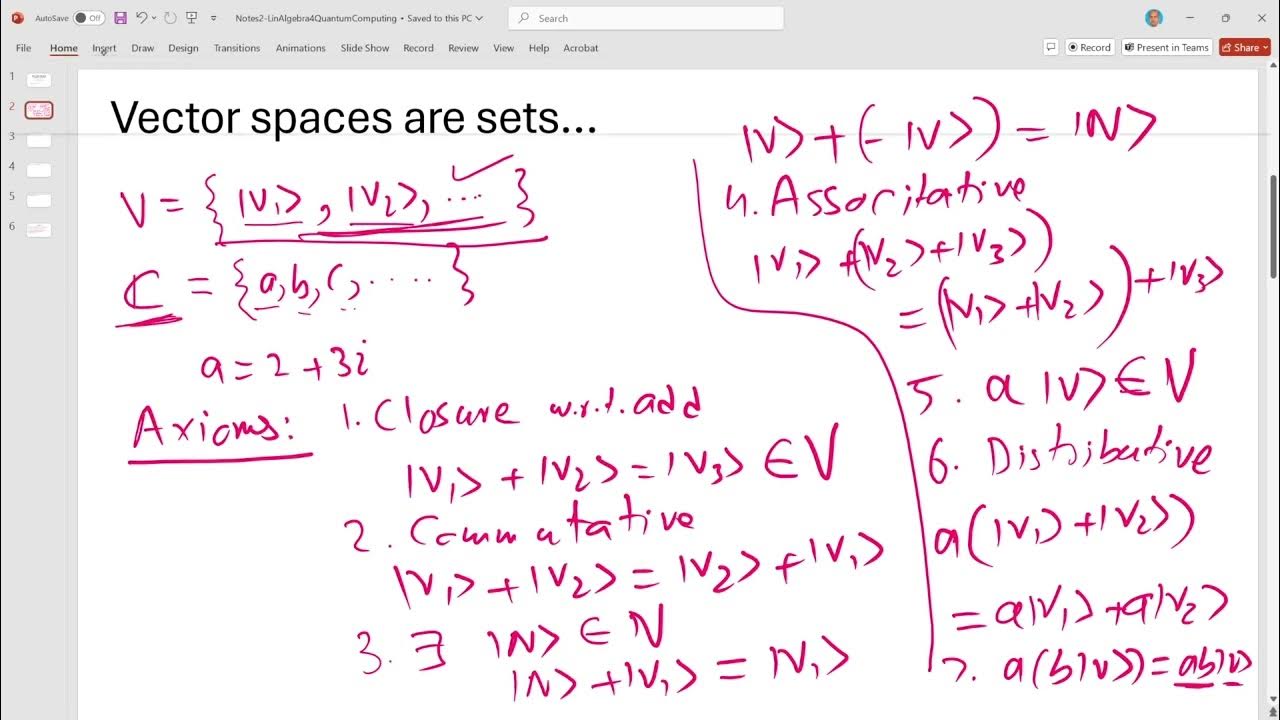 AutoSave Off Notes2-LinAlgebra4QuantumComputing • Saved to this PC Search
File Home Insert Draw Design Transitions Animations Slide Show Record Review View Help Acrobat Record Present in Teams Share
1
2
3
4
5
6
Vector spaces are sets...
V = { |V₁⟩, |V₂⟩, .... }
ℂ = { a, b, c, ..... }
a = 2 + 3i
Axioms: 1. Closure w.r.t. add
|V₁⟩ + |V₂⟩ = |V₃⟩ ∈ V
2. Commutative
|V₁⟩ + |V₂⟩ = |V₂⟩ + |V₁⟩
3. ∃ |N⟩ ∈ V
|N⟩ + |V₁⟩ = |V₁⟩
|V⟩ + (- |V⟩) = |N⟩
4. Assoritative
|V₁⟩ + (|V₂⟩ + |V₃⟩)
= (|V₁⟩ + |V₂⟩) + |V₃⟩
5. a |V⟩ ∈ V
6. Distributive
a(|V₁⟩ + |V₂⟩)
= a|V₁⟩ + a|V₂⟩
7. a(b|V⟩) = ab|V⟩